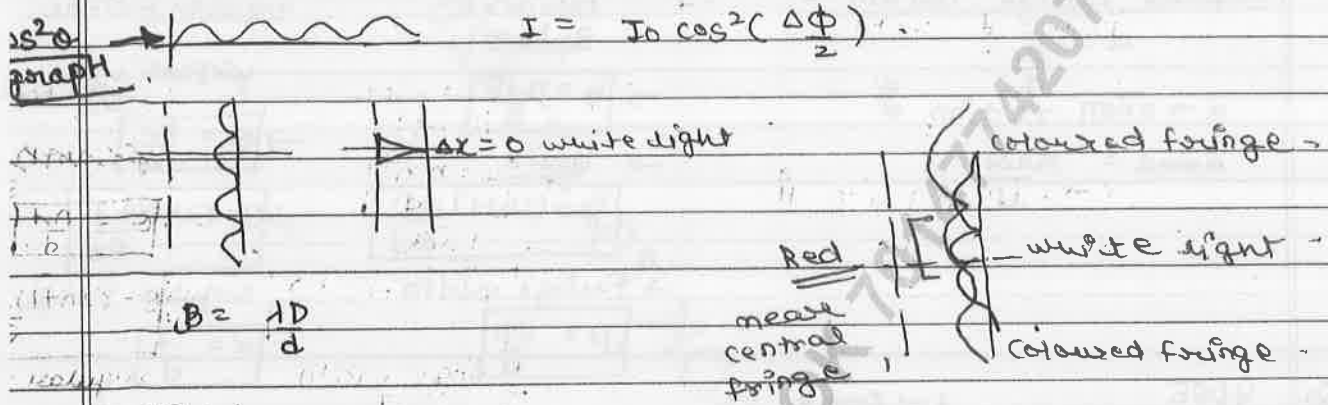 I = I₀ cos²(Δϕ/2).
os²θ
graph.
Δx = 0 white light
coloured fringe -
Red
white light -
near
central
fringe
β = λD/d
coloured fringe -